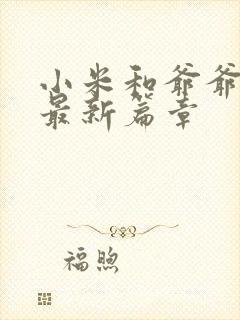 小米和爷爷
最新篇章
福煦